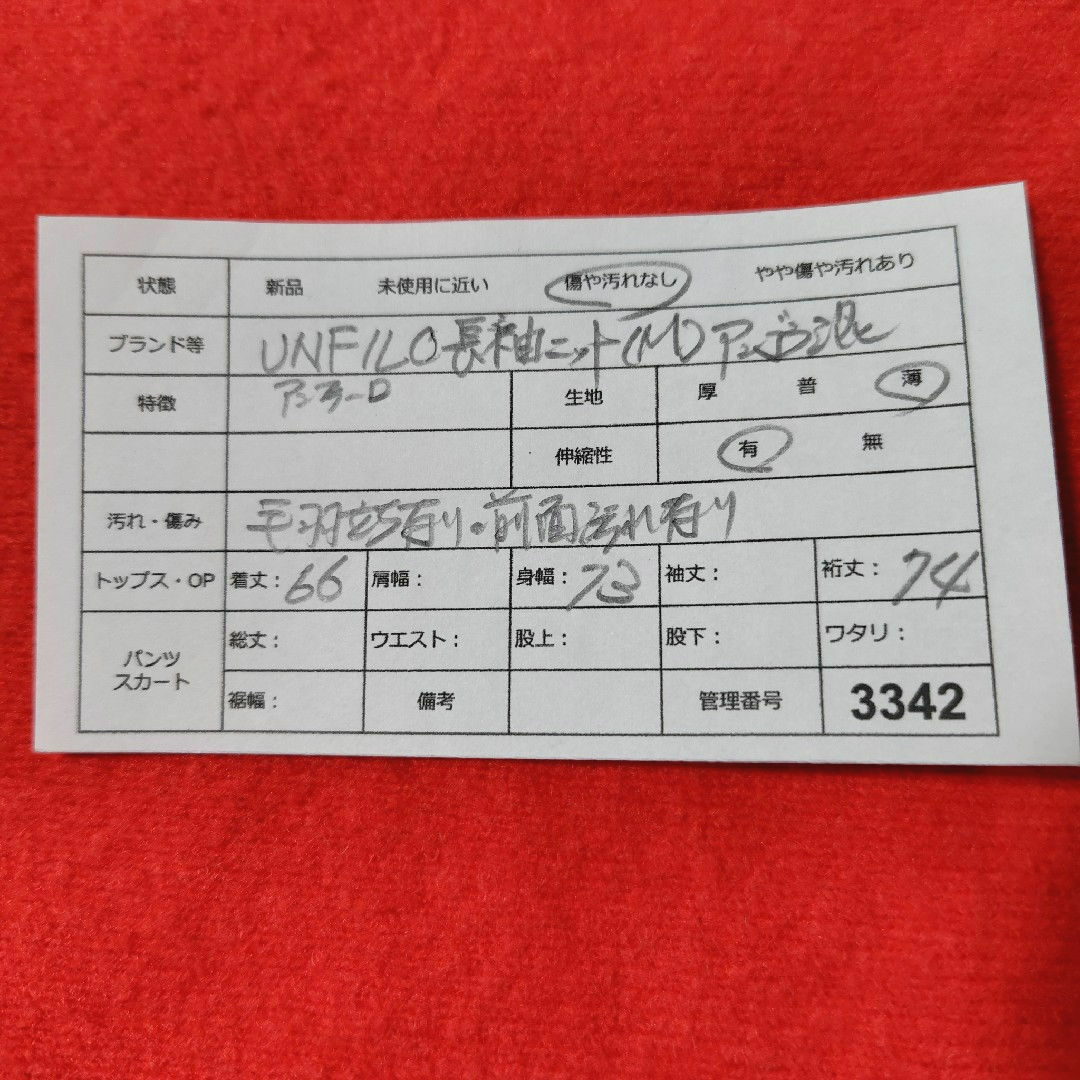 状態 新品 未使用に近い 傷や汚れなし やや傷や汚れあり
ブランド等 UNFILO 長袖ニット(M) アンゴラ混
特徴 生地 厚 普 薄
伸縮性 有 無
汚れ・傷み 毛羽立ち有り・前面汚れ有り
トップス・OP 着丈：66 肩幅： 身幅：73 袖丈： 裄丈：74
パンツ スカート 総丈： ウエスト： 股上： 股下： ワタリ：
裾幅： 備考 管理番号 3342